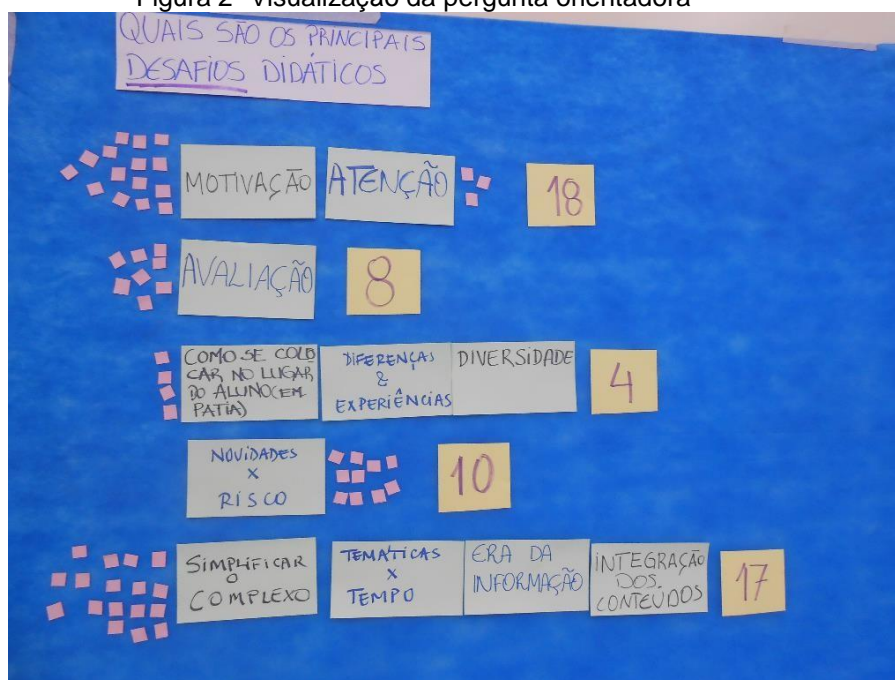 Figura 2- Visualização da pergunta orientadora
QUAIS SÃO OS PRINCIPAIS
DESAFIOS DIDÁTICOS
MOTIVAÇÃO
ATENÇÃO
18
AVALIAÇÃO
8
COMO SE COLO
CAR NO LUGAR
DO ALUNO (EM
PATIA)
DIFERENÇAS
&
EXPERIÊNCIAS
DIVERSIDADE
4
NOVIDADES
X
RISCO
10
SIMPLIFICAR
O
COMPLEXO
TEMÁTICAS
X
TEMPO
ERA DA
INFORMAÇÃO
INTEGRAÇÃO
DOS
CONTEÚDOS
17